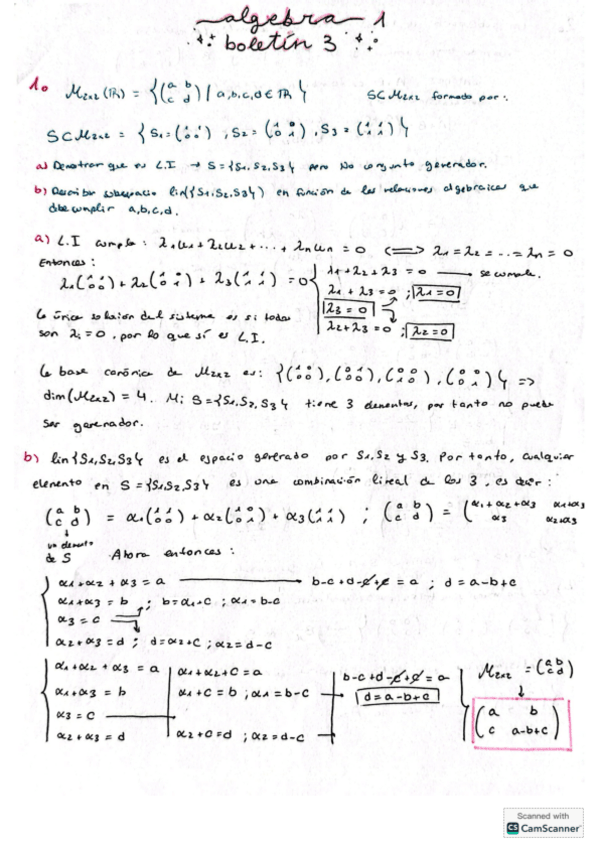 algebra 1
boletín 3
1. M2x2(IR) = {(a b / c d) / a,b,c,d ∈ IR} SCM2x2 formado por:
SCM2x2 = {S1=(1 1 / 0 0) ; S2=(1 0 / 0 1) , S3=(1 1 / 1 1)}
a) Demostrar que es L.I → S={S1,S2,S3} pero No conjunto generador.
b) Describir subespacio lin({S1,S2,S3}) en función de las relaciones algebraicas que
debe cumplir a,b,c,d.
a) L.I cumple: λ1u1+λ2u2+...+λnun = 0 <=> λ1=λ2=...=λn=0
Entonces:
λ1(1 1 / 0 0)+λ2(1 0 / 0 1)+λ3(1 1 / 1 1) = 0
λ1+λ2+λ3 = 0 se cumple.
λ1+λ3=0 ; λ1=0
λ3=0
λ2+λ3=0 ; λ2=0
la única solución del sistema es si todas
son λi=0, por lo que sí es L.I.
la base canónica de M2x2 es: {(1 0 / 0 0),(0 1 / 0 0),(0 0 / 1 0),(0 0 / 0 1)} =>
dim(M2x2)=4. Mi S={S1,S2,S3} tiene 3 elementos, por tanto no puede
ser generador.
b) lin{S1,S2,S3} es el espacio generado por S1,S2 y S3. Por tanto, cualquier
elemento en S={S1,S2,S3} es una combinación lineal de los 3, es decir:
(a b / c d) = α1(1 1 / 0 0)+α2(1 0 / 0 1)+α3(1 1 / 1 1) ; (a b / c d) = (α1+α2+α3 α1+α3 / α3 α2+α3
un elemento
de S
Ahora entonces:
α1+α2+α3=a b-c+d-c+c=a ; d=a-b+c
α1+α3=b ; b=α1+c ; α1=b-c
α3=c
α2+α3=d ; d=α2+c ; α2=d-c
α1+α2+α3=a α1+α2+c=a b-c+d-c+c=a M2x2=(a b / c d)
α1+α3=b α1+c=b ; α1=b-c d=a-b+c
α3=c (a b / c a-b+c)
α2+α3=d α2+c=d ; α2=d-c
Scanned with
CS CamScanner